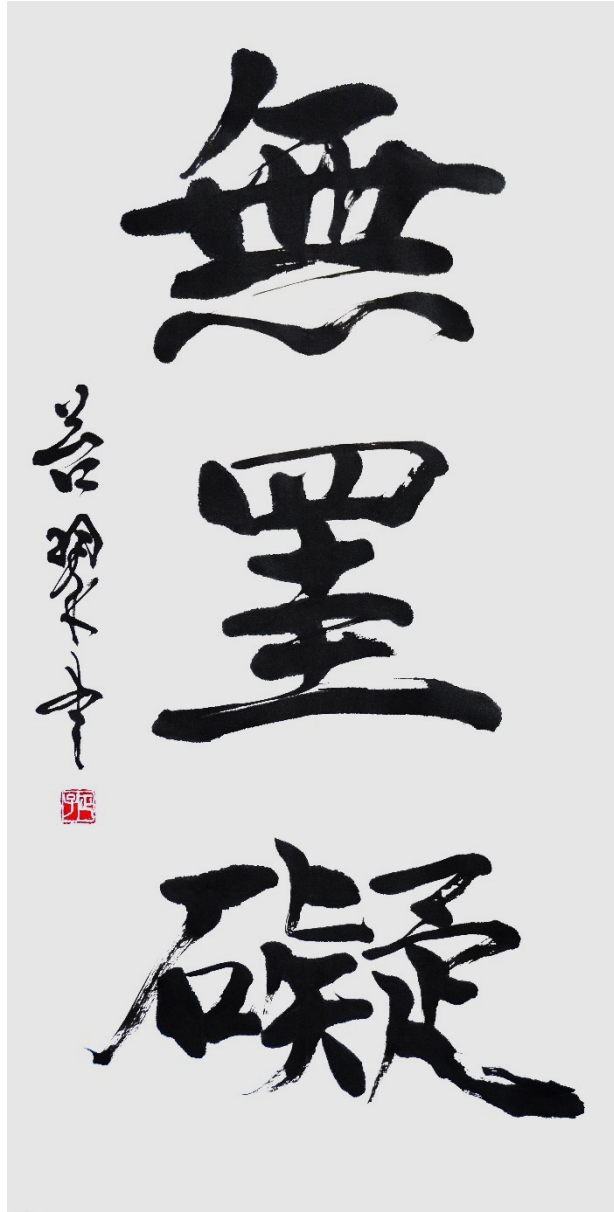 無罣礙